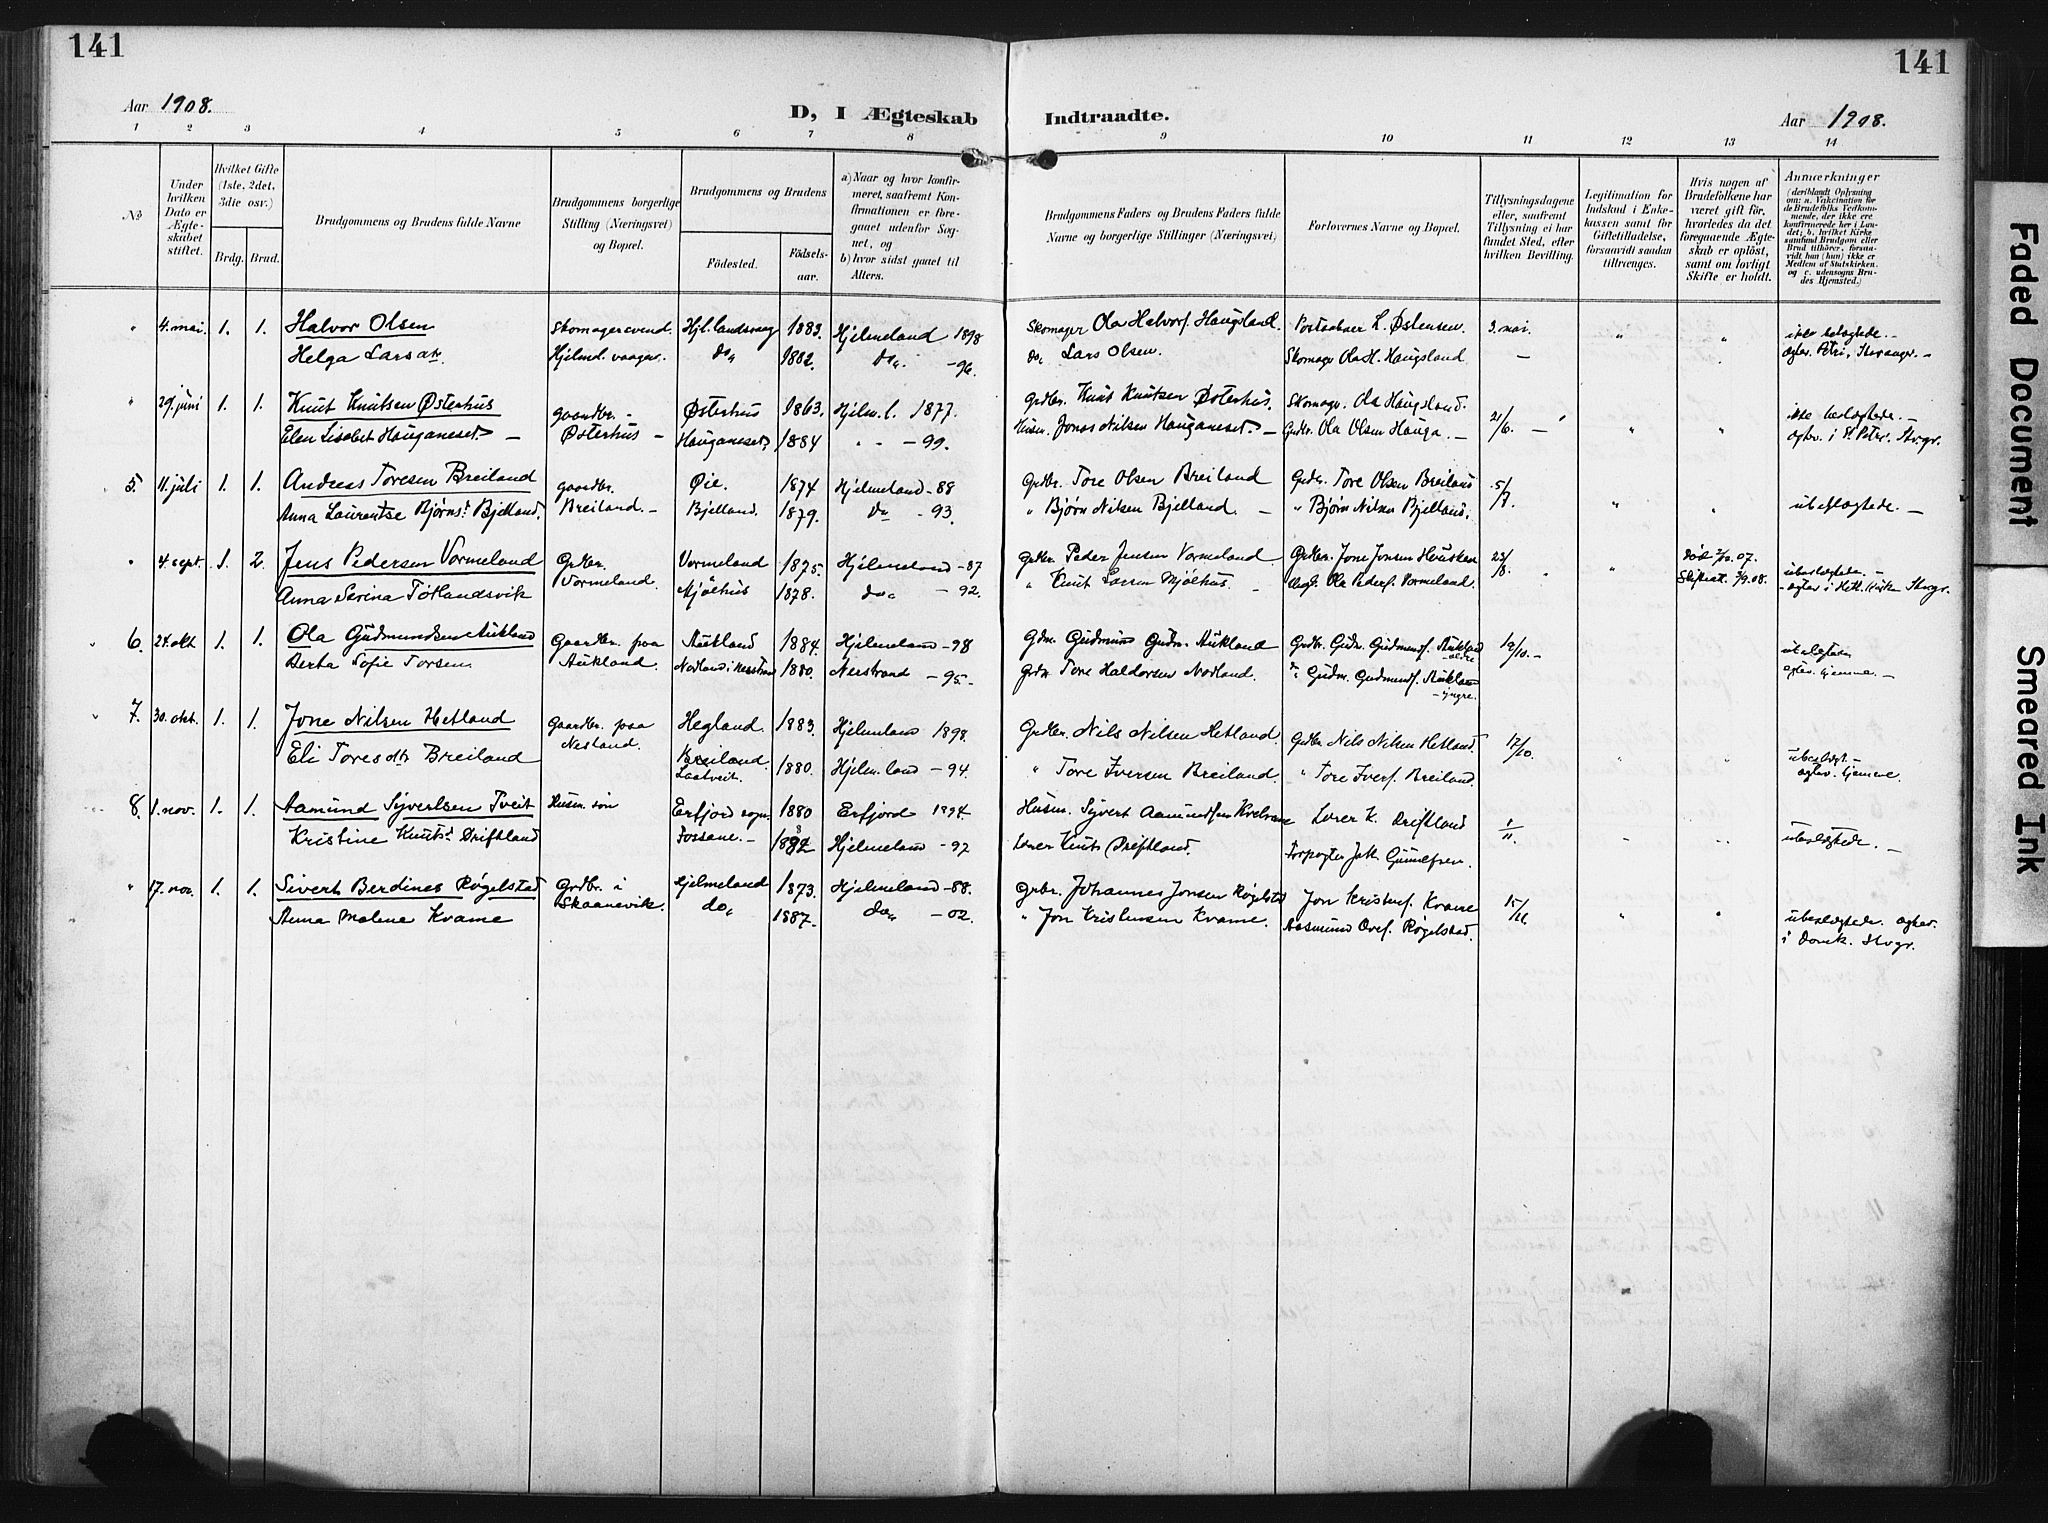 141
141
Aar 1908.
D, I Ægteskab Indtraadte.
Aar 1908.
1 2 3 4 5 6 7 8 9 10 11 12 13 14
No
Under hvilken Dato er Ægteskabet stiftet.
Hvilket Gifte (1ste, 2det, 3die osv.)
Brdg. Brud.
Brudgommens og Brudens fulde Navne
Brudgommens borgerlige Stilling (Næringsvei) og Bopæl.
Brudgommens og Brudens
Fødested.
Fødselsaar.
a) Naar og hvor konfirmeret, saafremt Konfirmationen er foregaaet udenfor Sognet, og
b) hvor sidst gaaet til Alters.
Brudgommens Faders og Brudens Faders fulde Navne og borgerlige Stillinger (Næringsvei)
Forlovernes Navne og Bopæl.
Tillysningsdagene eller, saafremt Tillysning ei har fundet Sted, efter hvilken Bevilling.
Legitimation for Indskud i Enkekassen samt for Giftetilladelse, forsaavidt saadan tiltrænges.
Hvis nogen af Brudefolkene har været gift før, hvorledes da det foregaaende Ægteskab er opløst, samt om lovligt Skifte er holdt.
Anmærkninger
(deriblandt Oplysning om: a. Vakcination for de Brudefolks Vedkommende, der ikke ere konfirmerede her i Landet; b. hvilket Kirkesamfund Brudgom eller Brud tilhører, forsaavidt han (hun) ikke er Medlem af Statskirken, og c. udensogns Brudes Hjemsted.)
" 4. mai. 1. 1. Halvor Olsen Skomagersvend. 1883. Hjelmeland 1898 Skomager Ola Halvors. Haugsland. L. Østensen. 3. mai. " "
Helga Larsdtr. Hjelmd. vaagen. do. 1882. do. - 96. do. Lars Olsen. Skomagr Ola H. Haugsland — Petri, Stavangr. -
" 29. juni 1. 1. Knut Knutsen Østerhus gaardbr. - Østerhus 1863. Hjelm.l. 1877. Grdbr. Knut Knutsen Østerhus. Skomagr. Ola Haugsland. 21/6. - " " ikke
Elen Lisebet Hauganeset. - Østerhus - Hauganeset. 1884 " " - 99. Husm. Jonas Nilsen Hauganeset. - Grdbr. Ola Olsen Hauga. - i St. Petri. Stvgr.
5. 11. juli 1. 1. Andreas Toresen Breiland gaardbr. Øie. 1874 Hjelmeland - 88 Grdbr. Tore Olsen Breiland Grdbr. Tore Olsen Breiland 5/7. " "
Anna Laurentse Bjørns. Bjelland. Breiland. - Bjelland. 1879. do - 93. " Bjørn Nilsen Bjelland. - " Bjørn Nilsen Bjelland. ubeslægtede. -
" 4. sept. 1. 2. Jens Pedersen Vormeland Grdbr. Vormeland 1875. Hjelmeland - 87 Grdbr. Peder Jensen Vormeland Grdbr. Jone Jonsen 23/8. " "
Anna Serina Tøtlandsvik Vormeland. Mjølhus 1878. do. - 92. " Knut Larsen Mjølhus - Ola Peders. Vormeland. ubeslægtede. -
6. 24. okt 1. 1. Ola Gudmundsen Aukland Gaardbr. paa Aukland 1884. Hjelmeland - 98 Gdm. Gudmund Gudm. Aukland Grdbr. Gudm. Gudmunds. Aukland - ældre 19/10. -
Berta Sofie Torsen Aukland. Nodland i Nerstrand 1880. Nerstrand - 95. Grdbr Tore Haldorsen Nodland. do Gudm. Gudmunds. Aukland - yngre.
7. 30. okt. 1. 1. Jone Nilsen Hetland Gaardbr. paa Hegland. 1883. Hjelmeland 1898. Grdbr. Nils Nilsen Hetland. Grdbr Nils Nilsen Hetland. 17/10.
Eli Toresdtr Breiland Breiland. 1880. Hjelm.land - 94. " Tore Iversen Breiland. " Tore Ivers. Breiland. hjemme.
8. 1. nov. 1. 1. Aamund Syvertsen Tveit Husm. søn Erfjord sogn. 1880 Erfjord 1894. Husm. Syvert Lærer K. Driftland 1/11. - ubeslægtede. -
Kristine Knuts. Driftland Fossane. - 1882 Hjelmeland - 97 Lærer Knut Driftland.
" 17. nov. 1. 1. Sivert Berdines Røgelstad Grdbr. i Hjelmeland 1873. Hjelmeland - 88. Grbr. Johannes Jonsen Røgelstad Jon Kristens. Kvame 15/11. " "
Anna Malene Kvame Skaanevik. do. 1887. do. - 02. " Jon Kristensen Kvame. Aasmund Røgelstad. ubeslægtede.
i Domk. Stvgr.
Faded Document
Smeared Ink